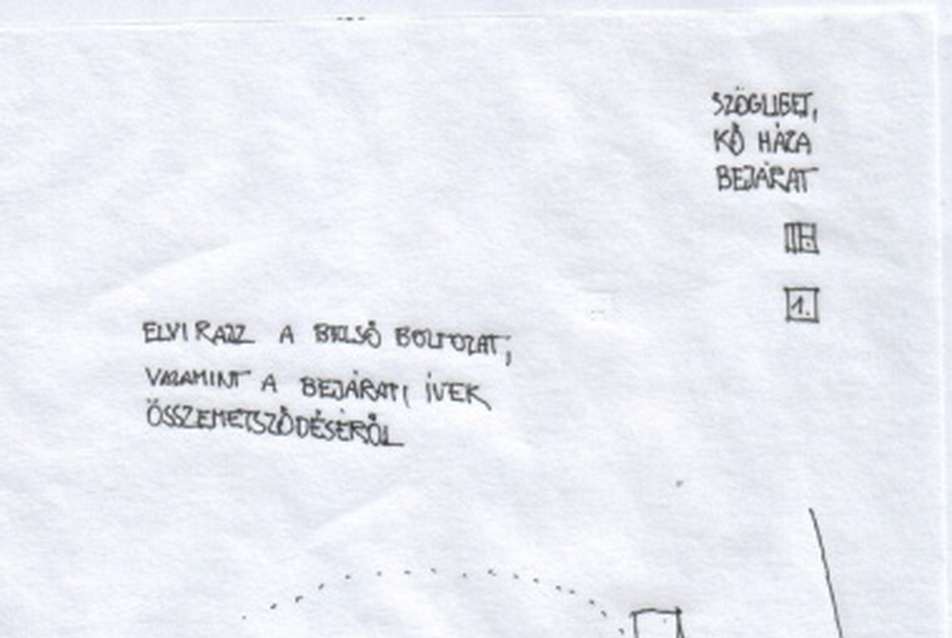 SZÖGLIGET,
KŐ HÁZA
BEJÁRAT
III.
1.
ELVI RAJZ A BELSŐ BOLTOZAT,
VALAMINT A BEJÁRATI ÍVEK
ÖSSZEMETSZŐDÉSÉRŐL